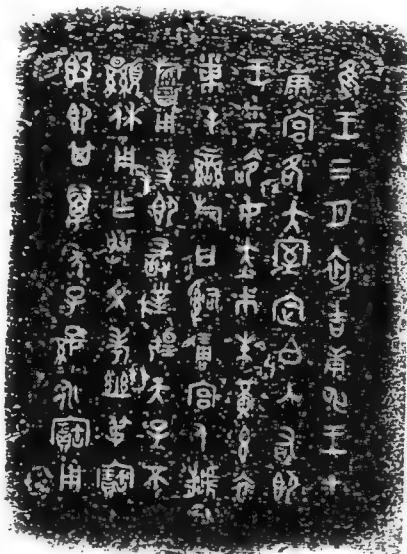 隹王三月初吉庚申王才
康宮各大室定白入右即
王乎命女赤巿朱黃玄衣
黹屯䜌旂曰𤔲琱宮人虢
用事即敢對揚天子不
顯休用乍朕文考幽弔寶
𣪘即其萬年子子孫孫永寶用